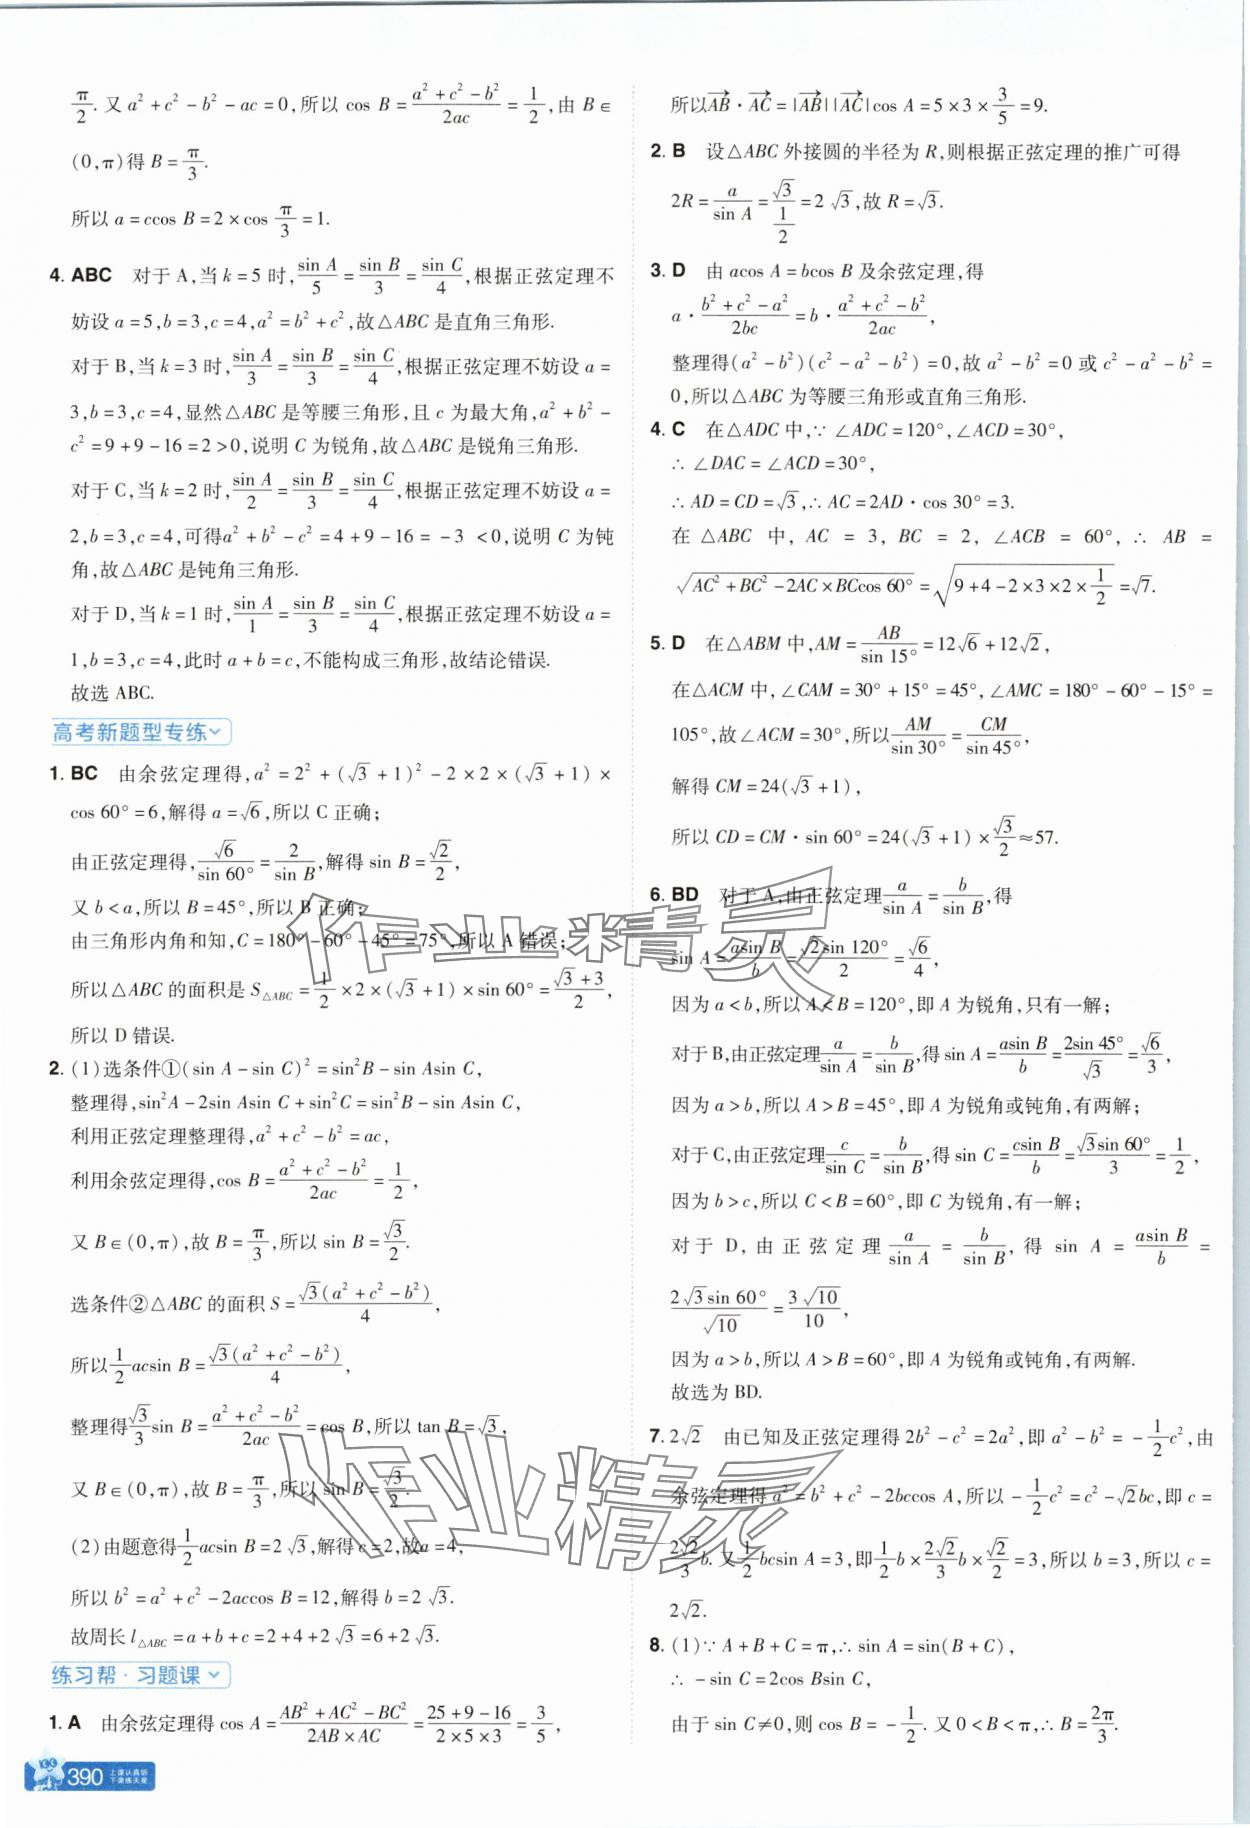 π/2. 又 a²+c²-b²-ac=0,所以 cos B=(a²+c²-b²)/2ac=1/2,由 B∈
(0,π)得 B=π/3.
所以 a=ccos B=2×cos π/3=1.
4. ABC 对于 A,当 k=5 时,sin A/5=sin B/3=sin C/4,根据正弦定理不
妨设 a=5,b=3,c=4,a²=b²+c²,故△ABC 是直角三角形.
对于 B,当 k=3 时,sin A/3=sin B/3=sin C/4,根据正弦定理不妨设 a=
3,b=3,c=4,显然△ABC 是等腰三角形,且 c 为最大角,a²+b²-
c²=9+9-16=2>0,说明 C 为锐角,故△ABC 是锐角三角形.
对于 C,当 k=2 时,sin A/2=sin B/3=sin C/4,根据正弦定理不妨设 a=
2,b=3,c=4,可得a²+b²-c²=4+9-16=-3 <0,说明 C 为钝
角,故△ABC 是钝角三角形.
对于 D,当 k=1 时,sin A/1=sin B/3=sin C/4,根据正弦定理不妨设 a=
1,b=3,c=4,此时 a+b=c,不能构成三角形,故结论错误.
故选 ABC.
高考新题型专练
1. BC 由余弦定理得,a²=2²+(√3+1)²-2×2×(√3+1)×
cos 60°=6,解得 a=√6,所以 C 正确;
由正弦定理得,√6/sin 60°=2/sin B,解得 sin B=√2/2,
又 b<a,所以 B=45°,所以 B 正确;
由三角形内角和知,C=180°-60°-45°=75°,所以 A 错误;
所以△ABC 的面积是 S△ABC=1/2×2×(√3+1)×sin 60°=(√3+3)/2,
所以 D 错误.
2. (1)选条件①(sin A-sin C)²=sin²B-sin Asin C,
整理得,sin²A-2sin Asin C+sin²C=sin²B-sin Asin C,
利用正弦定理整理得,a²+c²-b²=ac,
利用余弦定理得,cos B=(a²+c²-b²)/2ac=1/2,
又 B∈(0,π),故 B=π/3,所以 sin B=√3/2.
选条件②△ABC 的面积 S=√3(a²+c²-b²)/4,
所以1/2acsin B=√3(a²+c²-b²)/4,
整理得√3/3sin B=(a²+c²-b²)/2ac=cos B,所以 tan B=√3,
又 B∈(0,π),故 B=π/3,所以 sin B=√3/2.
(2)由题意得1/2acsin B=2√3,解得 c=2,故a=4,
所以 b²=a²+c²-2accos B=12,解得 b=2√3.
故周长 l△ABC=a+b+c=2+4+2√3=6+2√3.
练习帮·习题课
1. A 由余弦定理得 cos A=(AB²+AC²-BC²)/(2AB×AC)=(25+9-16)/(2×5×3)=3/5,
390 上课认真听
下课练天星
所以AB→·AC→=|AB→||AC→|cos A=5×3×3/5=9.
2. B 设△ABC 外接圆的半径为 R,则根据正弦定理的推广可得
2R=a/sin A=√3/(1/2)=2√3,故 R=√3.
3. D 由 acos A=bcos B 及余弦定理,得
a·(b²+c²-a²)/2bc=b·(a²+c²-b²)/2ac,
整理得(a²-b²)(c²-a²-b²)=0,故 a²-b²=0 或 c²-a²-b²=
0,所以△ABC 为等腰三角形或直角三角形.
4. C 在△ADC 中,∵∠ADC=120°,∠ACD=30°,
∴∠DAC=∠ACD=30°,
∴AD=CD=√3,∴AC=2AD·cos 30°=3.
在 △ABC 中, AC = 3, BC = 2, ∠ACB = 60°, ∴ AB =
√(AC²+BC²-2AC×BCcos 60°)=√(9+4-2×3×2×1/2)=√7.
5. D 在△ABM 中,AM=AB/sin 15°=12√6+12√2,
在△ACM 中,∠CAM=30°+15°=45°,∠AMC=180°-60°-15°=
105°,故∠ACM=30°,所以AM/sin 30°=CM/sin 45°,
解得 CM=24(√3+1),
所以 CD=CM·sin 60°=24(√3+1)×√3/2≈57.
6. BD 对于 A,由正弦定理a/sin A=b/sin B,得
sin A=asin B/b=√2sin 120°/2=√6/4,
因为 a<b,所以 A<B=120°,即 A 为锐角,只有一解;
对于 B,由正弦定理a/sin A=b/sin B,得 sin A=asin B/b=2sin 45°/√3=√6/3,
因为 a>b,所以 A>B=45°,即 A 为锐角或钝角,有两解;
对于 C,由正弦定理c/sin C=b/sin B,得 sin C=csin B/b=√3sin 60°/3=1/2,
因为 b>c,所以 C<B=60°,即 C 为锐角,有一解;
对于 D, 由正弦定理 a/sin A = b/sin B, 得 sin A = asin B/b =
2√3sin 60°/√10=3√10/10,
因为 a>b,所以 A>B=60°,即 A 为锐角或钝角,有两解.
故选为 BD.
7. 2√2 由已知及正弦定理得 2b²-c²=2a²,即 a²-b²=-1/2c²,由
余弦定理得 a²=b²+c²-2bccos A,所以-1/2c²=c²-√2bc,即 c=
2√2/3b. 又1/2bcsin A=3,即1/2b×2√2/3b×√2/2=3,所以 b=3,所以 c=
2√2.
8. (1)∵A+B+C=π,∴sin A=sin(B+C),
∴-sin C=2cos Bsin C,
由于 sin C≠0,则 cos B=-1/2. 又 0<B<π,∴B=2π/3.
作业精灵
作业精灵